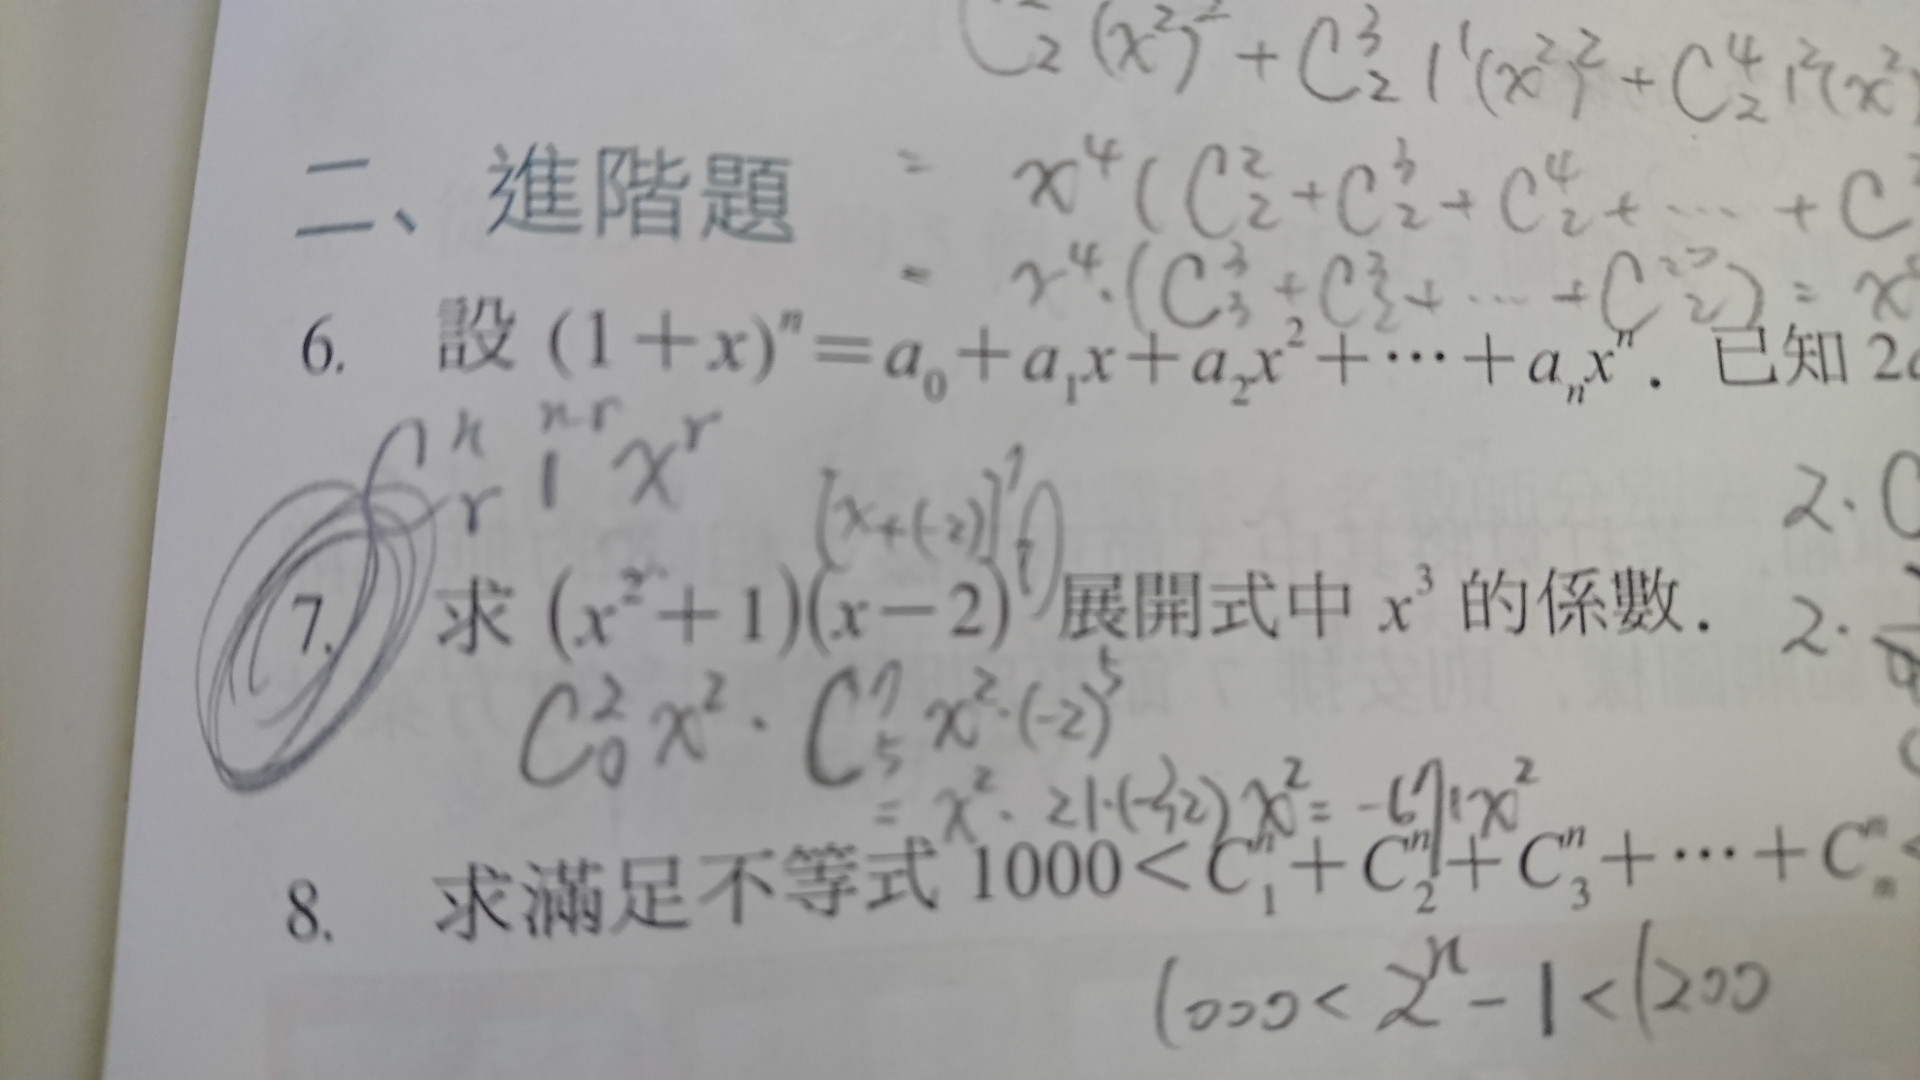 C₂² (x²)² + C₂³ 1¹(x²)² + C₂⁴ 1²(x²)
二、進階題
= x⁴ ( C₂² + C₂³ + C₂⁴ + ⋯ + C
= x⁴·( C₃³ + C₂³ + ⋯ + C₂ ) = x
6. 設 (1+x)ⁿ=a₀+a₁x+a₂x²+⋯+aₙxⁿ. 已知 2
Cᵣⁿ 1ⁿ⁻ʳ xʳ
[x+(-2)]⁷
2·C
7. 求 (x²+1)(x−2)⁷ 展開式中 x³ 的係數.
2·
C₀² x² · C₅⁷ x²·(-2)⁵
= x² · 21·(-32) x² = -671x²
8. 求滿足不等式 1000<C₁ⁿ+C₂ⁿ+C₃ⁿ+⋯+Cₙⁿ<
1000 < 2ⁿ - 1 < 1200